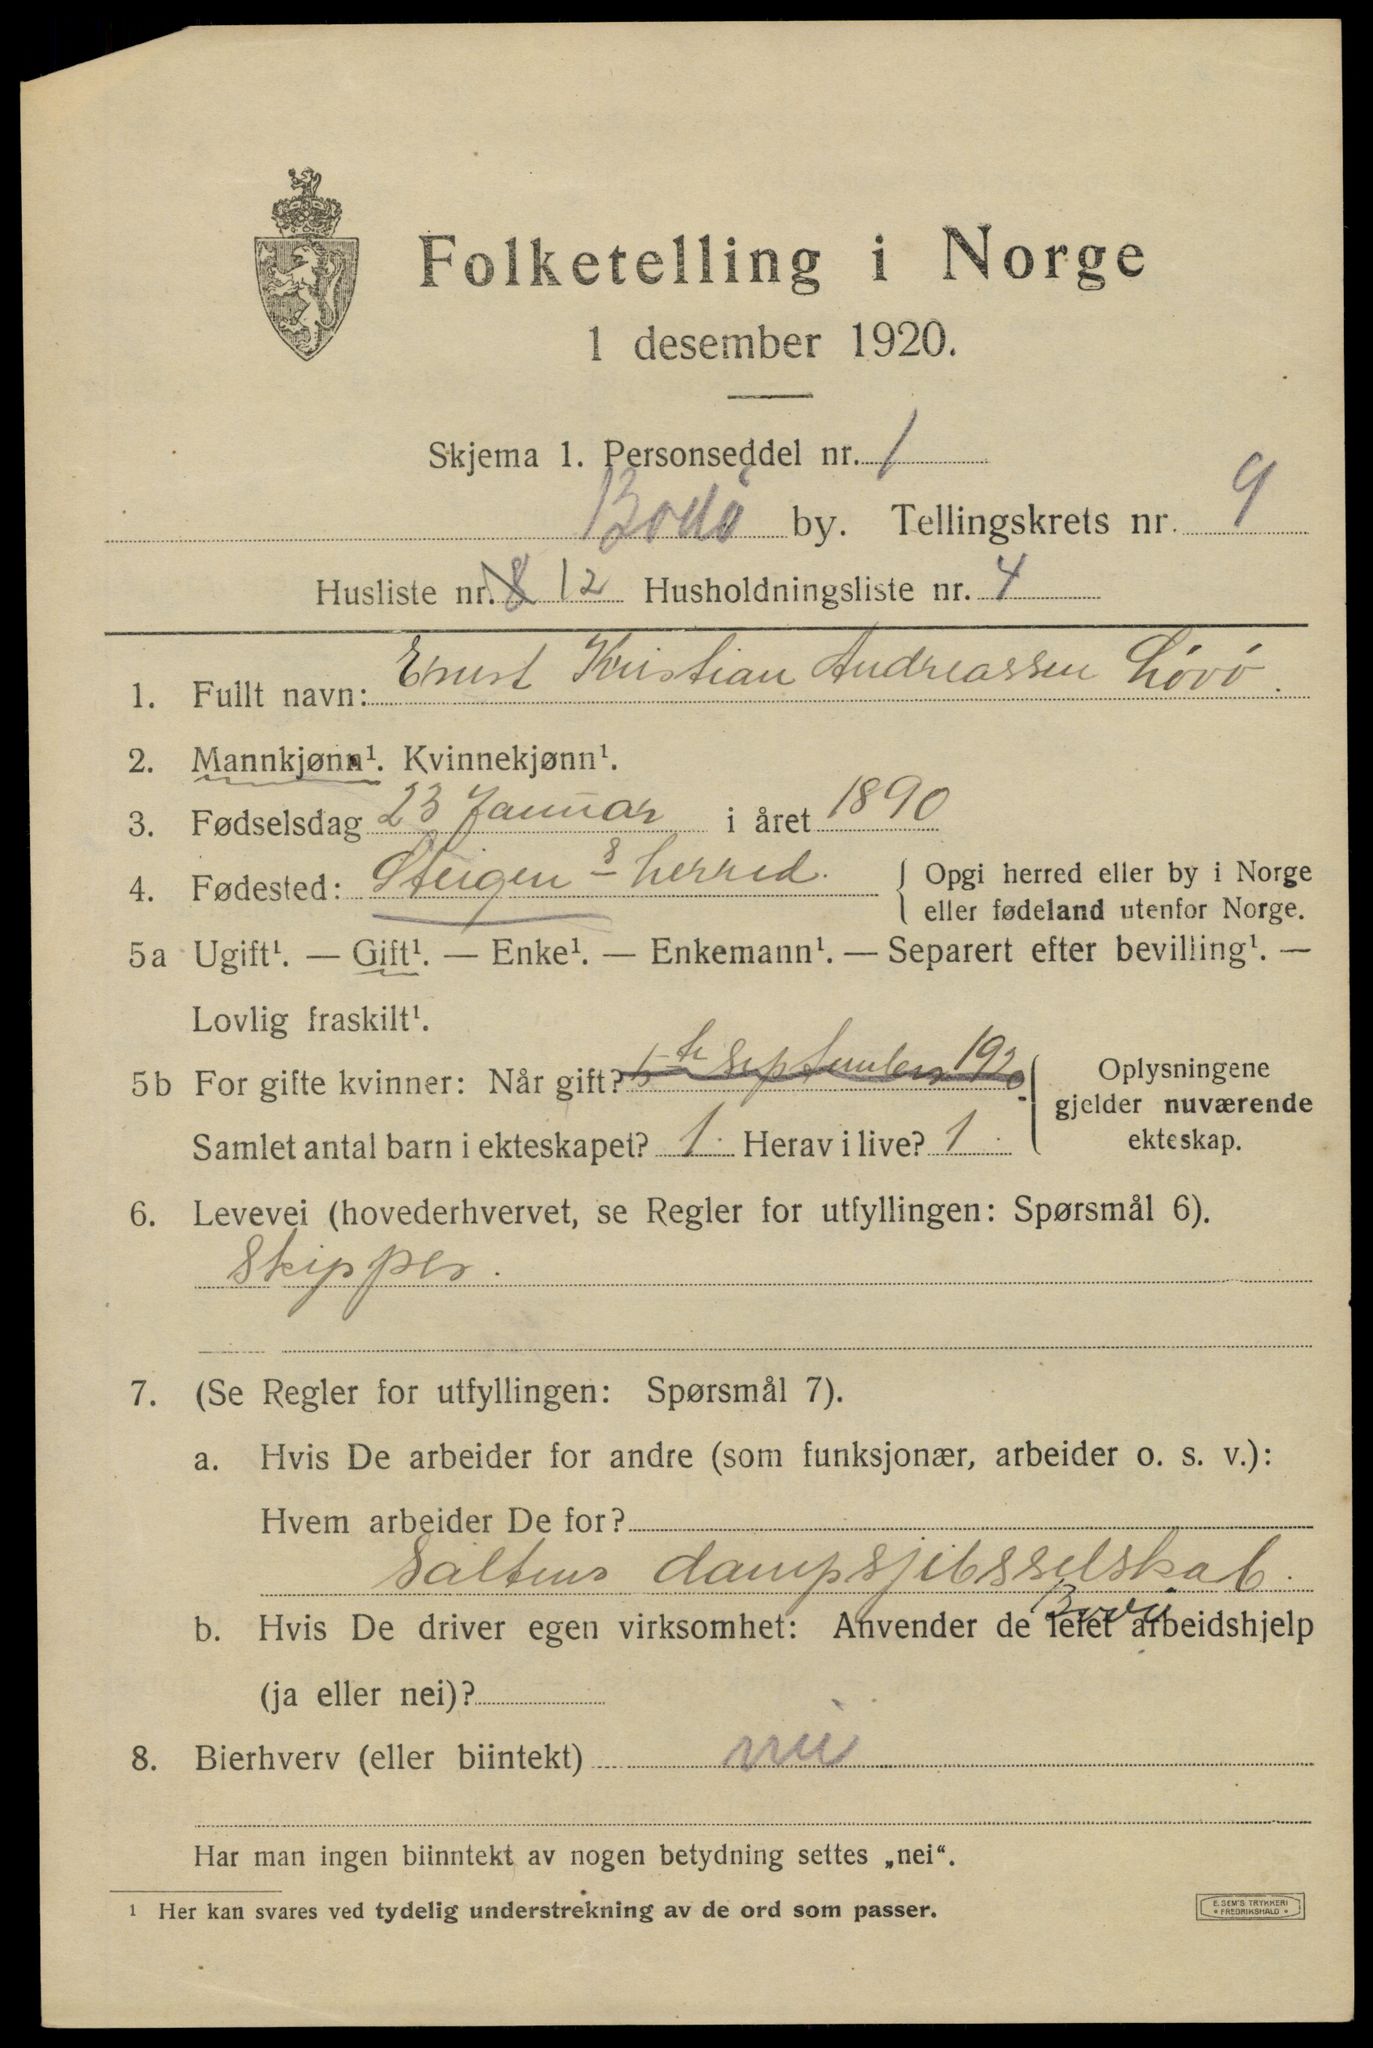 Folketelling i Norge
1 desember 1920.
Skjema 1. Personseddel nr. 1
Bodø by. Tellingskrets nr. 9
Husliste nr. 8 12 Husholdningsliste nr. 4
1. Fullt navn: Ernst Kristian Andreassen Løvø.
2. Mannkjønn¹. Kvinnekjønn¹.
3. Fødselsdag 23 Januar i året 1890
4. Fødested: Steigen s herred. { Opgi herred eller by i Norge
eller fødeland utenfor Norge.
5a Ugift¹. — Gift¹. — Enke¹. — Enkemann¹. — Separert efter bevilling¹. —
Lovlig fraskilt¹.
5b For gifte kvinner: Når gift? 5te September 1920
Samlet antal barn i ekteskapet? 1. Herav i live? 1.
Oplysningene
gjelder nuværende
ekteskap.
6. Levevei (hovederhvervet, se Regler for utfyllingen: Spørsmål 6).
Skipper.
7. (Se Regler for utfyllingen: Spørsmål 7).
a. Hvis De arbeider for andre (som funksjonær, arbeider o. s. v.):
Hvem arbeider De for?
Saltens dampsjibsselskab.
Bodø
b. Hvis De driver egen virksomhet: Anvender de leiet arbeidshjelp
(ja eller nei)?
8. Bierhverv (eller biintekt) nei
Har man ingen biinntekt av nogen betydning settes „nei“.
¹ Her kan svares ved tydelig understrekning av de ord som passer.
E. SEM'S TRYKKERI
* FREDRIKSHALD *